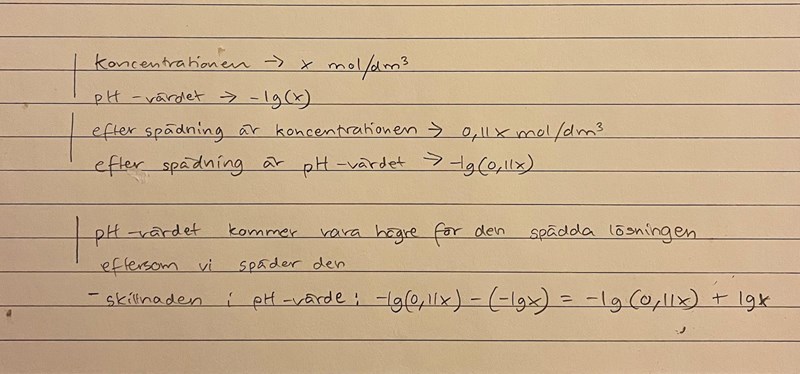 koncentrationen → x mol/dm³
pH-värdet → -lg(x)
efter spädning är koncentrationen → 0,11x mol/dm³
efter spädning är pH-värdet → -lg(0,11x)
pH-värdet kommer vara högre för den spädda lösningen
eftersom vi späder den
- skillnaden i pH-värde: -lg(0,11x) - (-lgx) = -lg(0,11x) + lgx